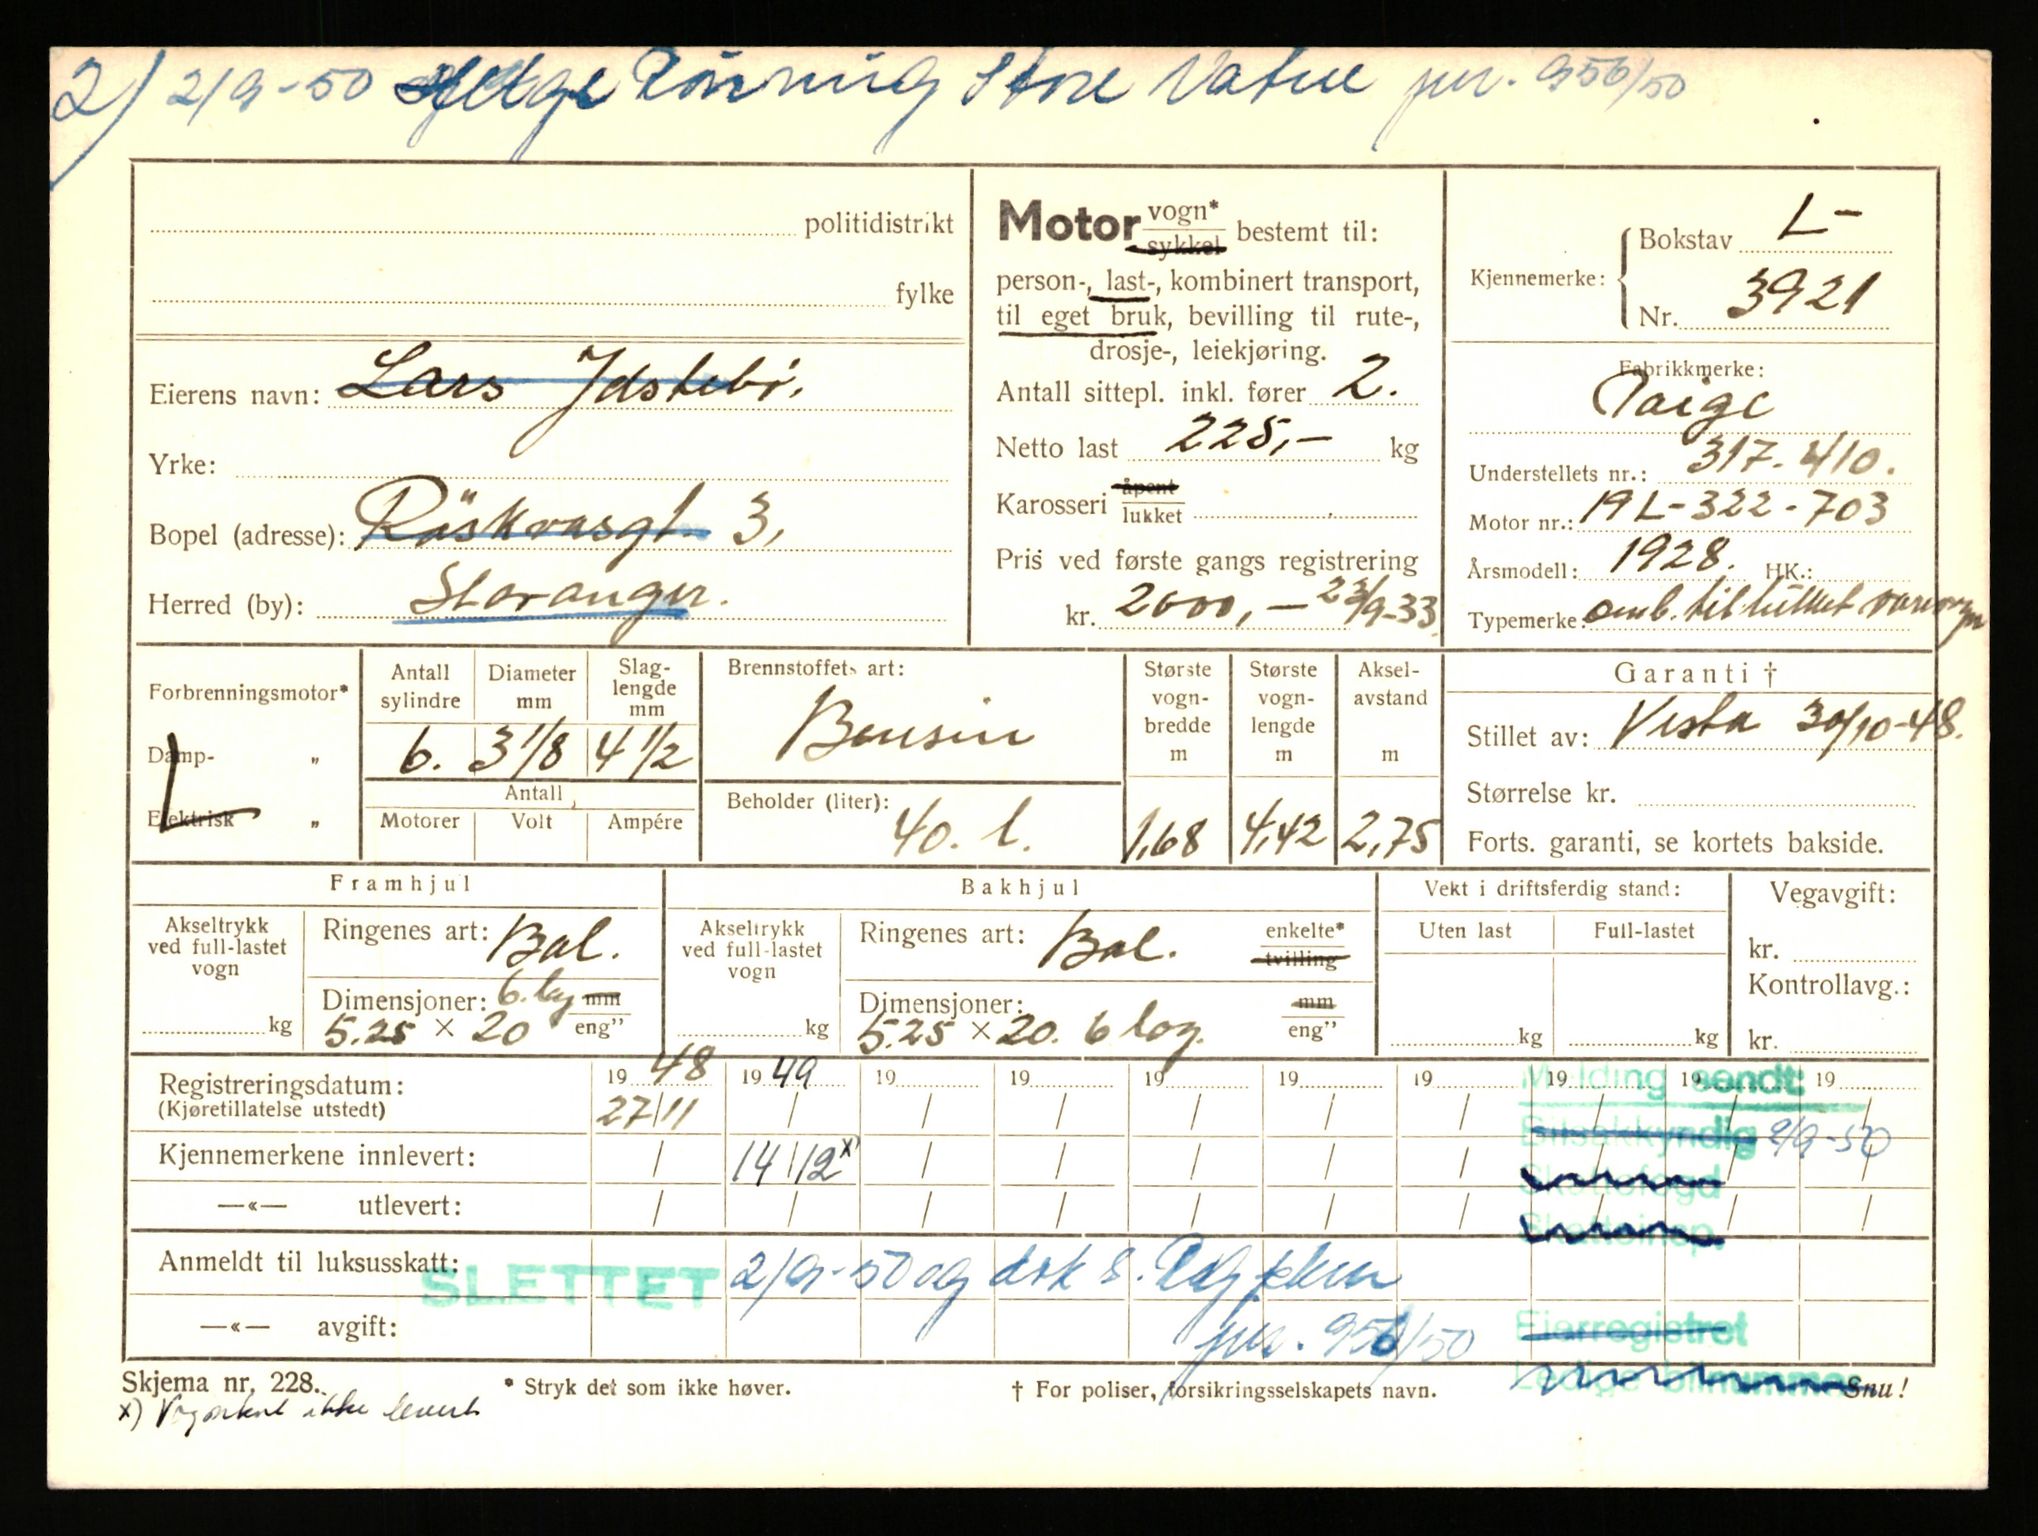 2) 2/9-50 Helge Rönning Store Vatne jnr. 956/50
politidistrikt
fylke
Eierens navn: Lars Idstebö,
Yrke:
Bopel (adresse): Röskvasgt. 3,
Herred (by): Stavanger.
Motor vogn* sykkel bestemt til:
person-, last-, kombinert transport,
til eget bruk, bevilling til rute-,
drosje-, leiekjøring.
Antall sittepl. inkl. fører 2.
Netto last 225,- kg
Karosseri åpent lukket
Pris ved første gangs registrering
kr. 2000,- 23/9-33.
Kjennemerke: Bokstav L-
Nr. 3921
Fabrikkmerke:
Paige
Understellets nr.: 317.410.
Motor nr.: 19L-322-703
Årsmodell: 1928. HK.:
Typemerke: omb. til lukket varevogn
Forbrenningsmotor*
Damp- "
Elektrisk "
Antall sylindre
Diameter mm
Slag-lengde mm
6. 3 1/8 4 1/2
Antall
Motorer Volt Ampére
Brennstoffets art:
Bensin
Beholder (liter):
40. l.
Største vogn-bredde m
1,68
Største vogn-lengde m
4,42
Aksel-avstand m
2,75
Garanti †
Stillet av: Vesta 30/10-48.
Størrelse kr.
Forts. garanti, se kortets bakside.
Framhjul
Akseltrykk ved full-lastet vogn
kg
Ringenes art: Bal.
Dimensjoner: 6. lag mm
5.25 × 20 eng"
Bakhjul
Akseltrykk ved full-lastet vogn
kg
Ringenes art: Bal. enkelte* tvilling
Dimensjoner: mm
5.25 × 20. 6 lag. eng"
Vekt i driftsferdig stand:
Uten last Full-lastet
kg kg
Vegavgift:
kr.
Kontrollavg.:
kr.
Registreringsdatum: 19 48 19 49 19 19 19 19 19 19 19 19
(Kjøretillatelse utstedt) 27/11 / / / / / / / / /
Kjennemerkene innlevert: / 14/12 x) / / / / / / / /
—«— utlevert: / / / / / / / / / /
Melding sendt:
Bilsakkyndig 2/9-50
Skattefogd
Skatteinsp.
Anmeldt til luksusskatt:
SLETTET 2/9-50 og
—«— avgift:
jnr. 956/50
Eiarregistret
Ledige bilnumme
Skjema nr. 228. * Stryk det som ikke høver. † For poliser, forsikringsselskapets navn. Snu!
x) Vognkort ikke levert